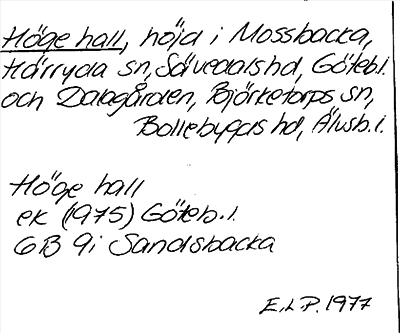 Höge hall, höjd i Mossbacka,
Härryda sn, Sävedals hd, Göteb.l.
och Dalagården, Björketorps sn,
Bollebygds hd, Älvsb.l.
Höge hall
ek (1975) Göteb.l.
6B 9i Sandsbacka
E.L.P. 1977